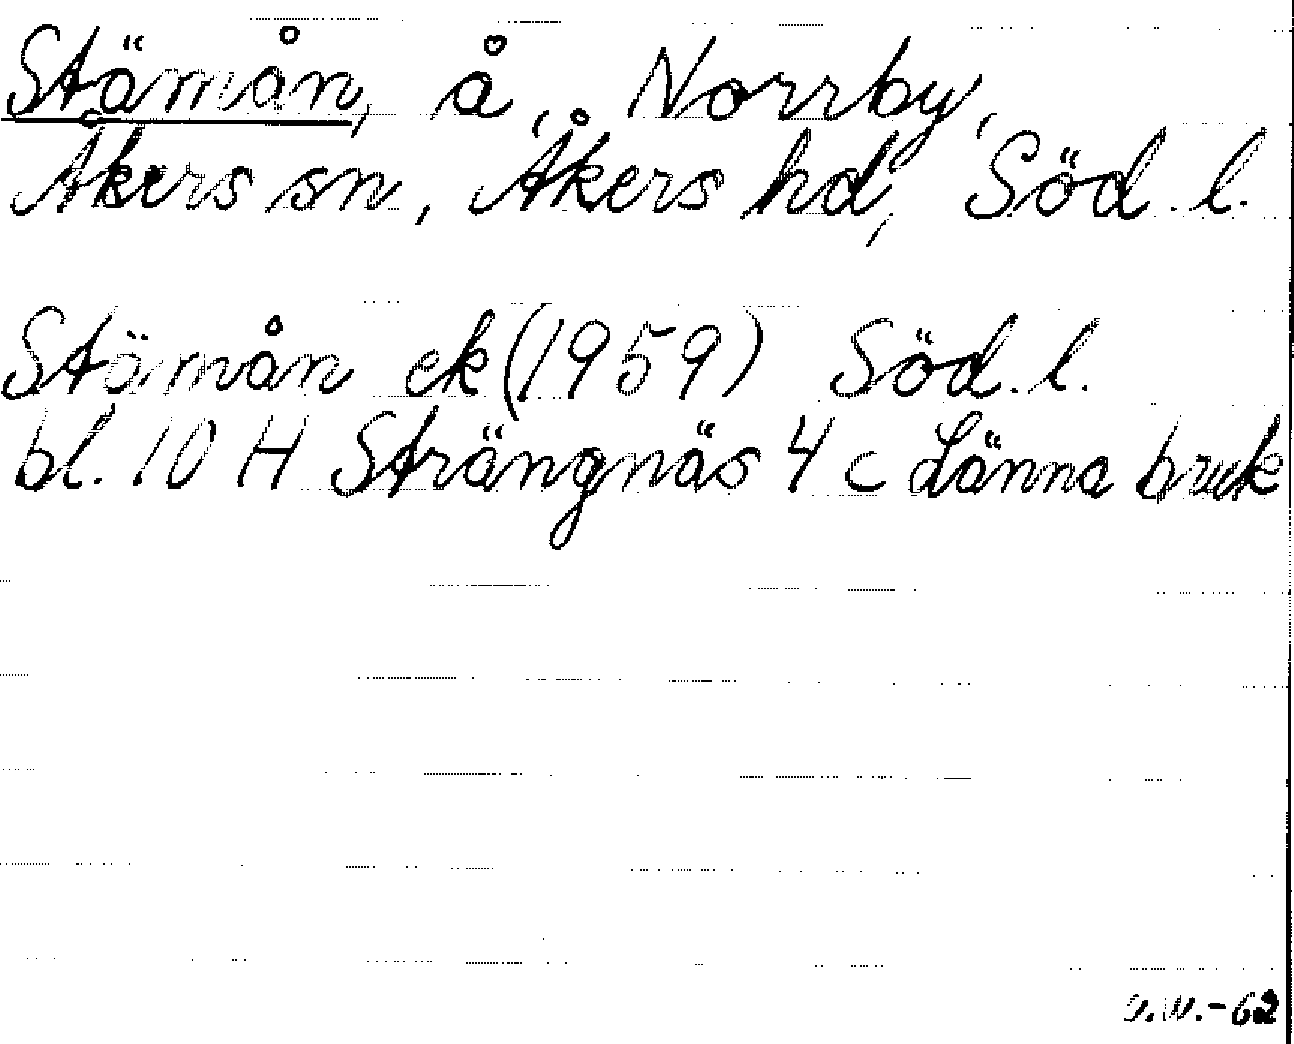 Stämån, å, Norrby,
Åkers sn, Åkers hd, Söd. l.
Stämån ek (1959) Söd. l.
bl. 10 H Strängnäs 4 c Länna bruk
-62